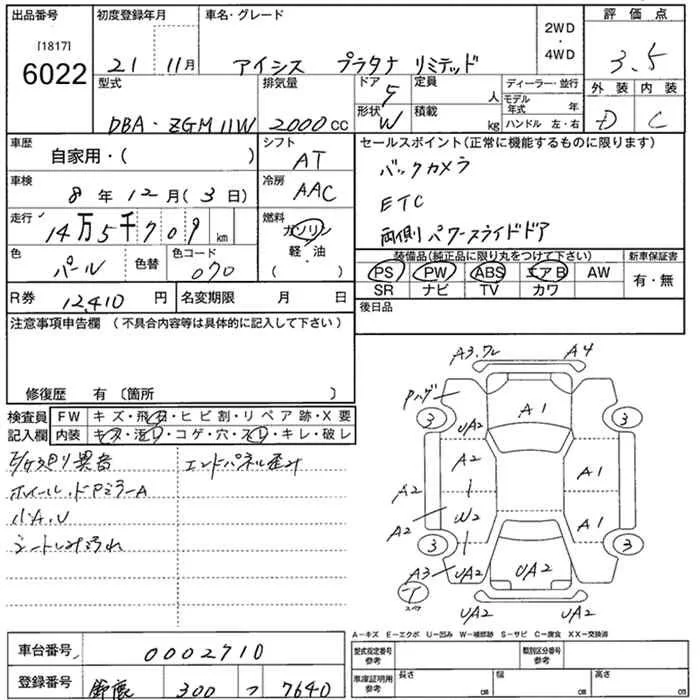 出品番号 初度登録年月 車名・グレード 2WD・4WD 評価点
[1817]
6022 21 11月 アイシス プラタナ リミテッド 3.5
型式 排気量 ドア 5 定員 人 ディーラー・並行 外装 内装
DBA・ZGM11W 2000cc 形状 W 積載 kg モデル年式 年 D C
ハンドル 左・右
車歴 自家用・( ) シフト AT セールスポイント(正常に機能するものに限ります)
車検 8年12月(3日) 冷房 AAC バックカメラ
ETC
走行 14万5千709km 燃料 ガソリン 軽・油 ( ) 両側パワースライドドア
色 パール 色替 色コード 070 装備品(純品に限り丸をつけて下さい) 新車保証書
PS PW ABS エアB AW 有・無
SR ナビ TV カワ
R券 12,410円 名変期限 月 日 後日品
注意事項申告欄(不具合内容等は具体的に記入して下さい)
修復歴 有 〔箇所 〕
検査員記入欄 FW キズ・飛石・ヒビ割・リペア跡・X要
内装 キズ・汚レ・コゲ・穴・スレ・キレ・破レ
異音 エンドパネル歪み
ホイール、ドアミラーA
小A、U
シートしみ汚れ
A3.ワレ A4
Pハゲ
3 A1 3
UA2
A2 A1
A2
A2 W2 A1
3 3
A3 UA2 UA2
スペア UA2 UA2
A-キズ E-エクボ U-凹み W-補修跡 S-サビ C-腐食 XX-交換済
車台番号 0002710 型式指定番号 参考 類別区分番号 参考
登録番号 鈴鹿 300 つ 7640 車庫証明用 参考 長さ cm 幅 cm 高さ cm